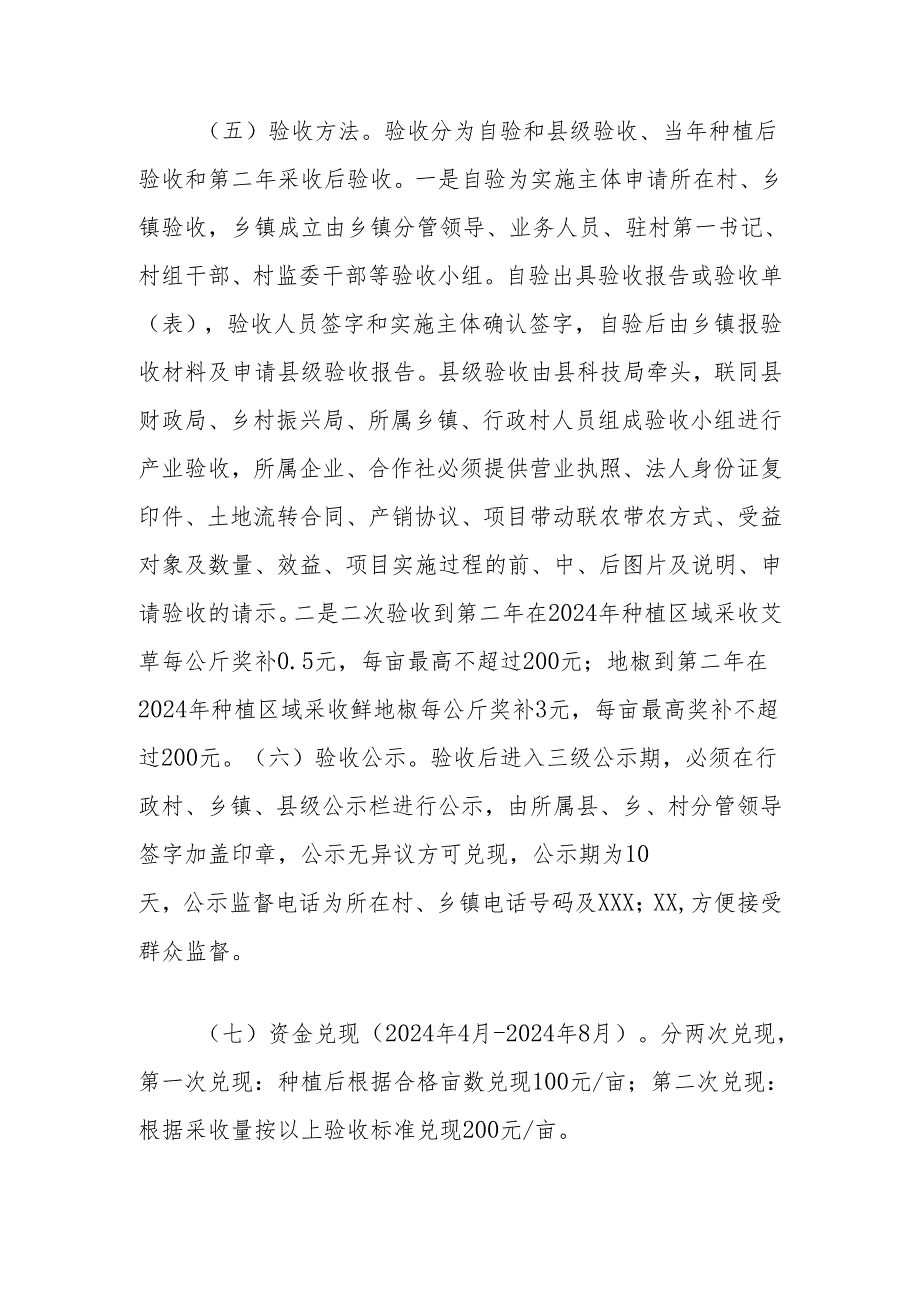 （五）验收方法。验收分为自验和县级验收、当年种植后
验收和第二年采收后验收。一是自验为实施主体申请所在村、乡
镇验收，乡镇成立由乡镇分管领导、业务人员、驻村第一书记、
村组干部、村监委干部等验收小组。自验出具验收报告或验收单
（表），验收人员签字和实施主体确认签字，自验后由乡镇报验
收材料及申请县级验收报告。县级验收由县科技局牵头，联同县
财政局、乡村振兴局、所属乡镇、行政村人员组成验收小组进行
产业验收，所属企业、合作社必须提供营业执照、法人身份证复
印件、土地流转合同、产销协议、项目带动联农带农方式、受益
对象及数量、效益、项目实施过程的前、中、后图片及说明、申
请验收的请示。二是二次验收到第二年在2024年种植区域采收艾
草每公斤奖补0.5元，每亩最高不超过200元；地椒到第二年在
2024年种植区域采收鲜地椒每公斤奖补3元，每亩最高奖补不超
过200元。（六）验收公示。验收后进入三级公示期，必须在行
政村、乡镇、县级公示栏进行公示，由所属县、乡、村分管领导
签字加盖印章，公示无异议方可兑现，公示期为10
天，公示监督电话为所在村、乡镇电话号码及XXX；XX,方便接受
群众监督。
（七）资金兑现（2024年4月-2024年8月）。分两次兑现，
第一次兑现：种植后根据合格亩数兑现100元/亩；第二次兑现：
根据采收量按以上验收标准兑现200元/亩。